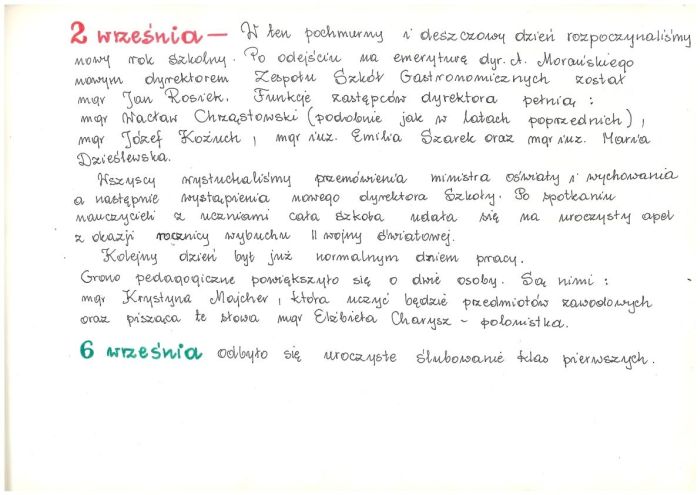 2 września — W ten pochmurny i deszczowy dzień rozpoczynaliśmy
nowy rok szkolny. Po odejściu na emeryturę dyr. A. Morańskiego
nowym dyrektorem Zespołu Szkół Gastronomicznych został
mgr Jan Rosiek. Funkcje zastępców dyrektora pełnią :
mgr Wacław Chrząstowski (podobnie jak w latach poprzednich) ,
mgr Józef Kożuch , mgr inż. Emilia Szarek oraz mgr inż. Maria
Dzieślewska.
Wszyscy wysłuchaliśmy przemówienia ministra oświaty i wychowania
a następnie wystąpienia nowego dyrektora Szkoły. Po spotkaniu
nauczycieli z uczniami cała szkoła udała się na uroczysty apel
z okazji rocznicy wybuchu II wojny światowej.
Kolejny dzień był już normalnym dniem pracy.
Grono pedagogiczne powiększyło się o dwie osoby. Są nimi :
mgr Krystyna Majcher , która uczyć będzie przedmiotów zawodowych
oraz pisząca te słowa mgr Elżbieta Charysz - polonistka.
6 września odbyło się uroczyste ślubowanie klas pierwszych.